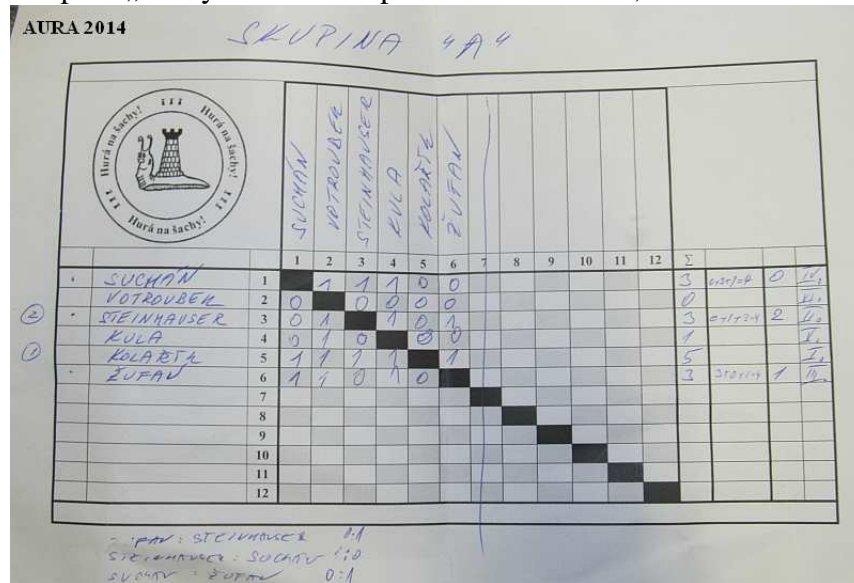 AURA 2014
SKUPINA "A"
Hurá na šachy! III Hurá na šachy! III Hurá na šachy! III
SUCHÁN VOTROUBEK STEINHAUSER KULA KOLAŘÍK ŽUFAN
1 2 3 4 5 6 7 8 9 10 11 12 Σ
SUCHÁN 1 1 1 1 0 0 3 0 IV.
VOTROUBEK 2 0 0 0 0 0 0
② STEINHAUSER 3 0 1 1 0 1 3 2 II.
KULA 4 0 1 0 0 0 1 V.
① KOLAŘÍK 5 1 1 1 1 1 5 I.
ŽUFAN 6 1 1 0 1 0 3 1 III.
7
8
9
10
11
12
: STEINHAUSER 0:1
STEINHAUSER : SUCHÁN 1:0
SUCHÁN : ŽUFAN 0:1